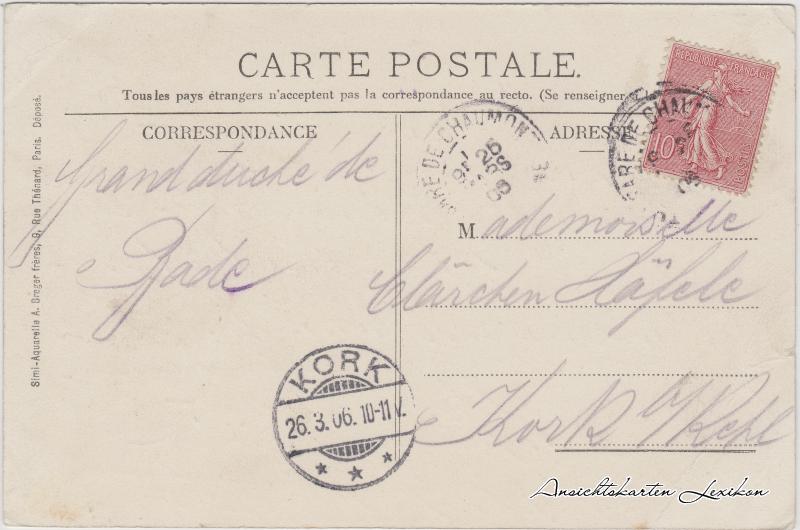 CARTE POSTALE.
Tous les pays étrangers n'acceptent pas la correspondance au recto. (Se renseigner
CORRESPONDANCE
ADRESSE
RÉPUBLIQUE FRANÇAISE
10
POSTES
GARE DE CHAUMON
25
GARE DE CHAUM
Grand duché de
Bade
Mademoiselle
Clärchen Häfele
Kork b/Kehl
KORK
26. 3. 06. 10-11 V.
Simi-Aquarelle A. Breger frères, 9, Rue Thénard, Paris. Déposé.
Ansichtskarten Lexikon